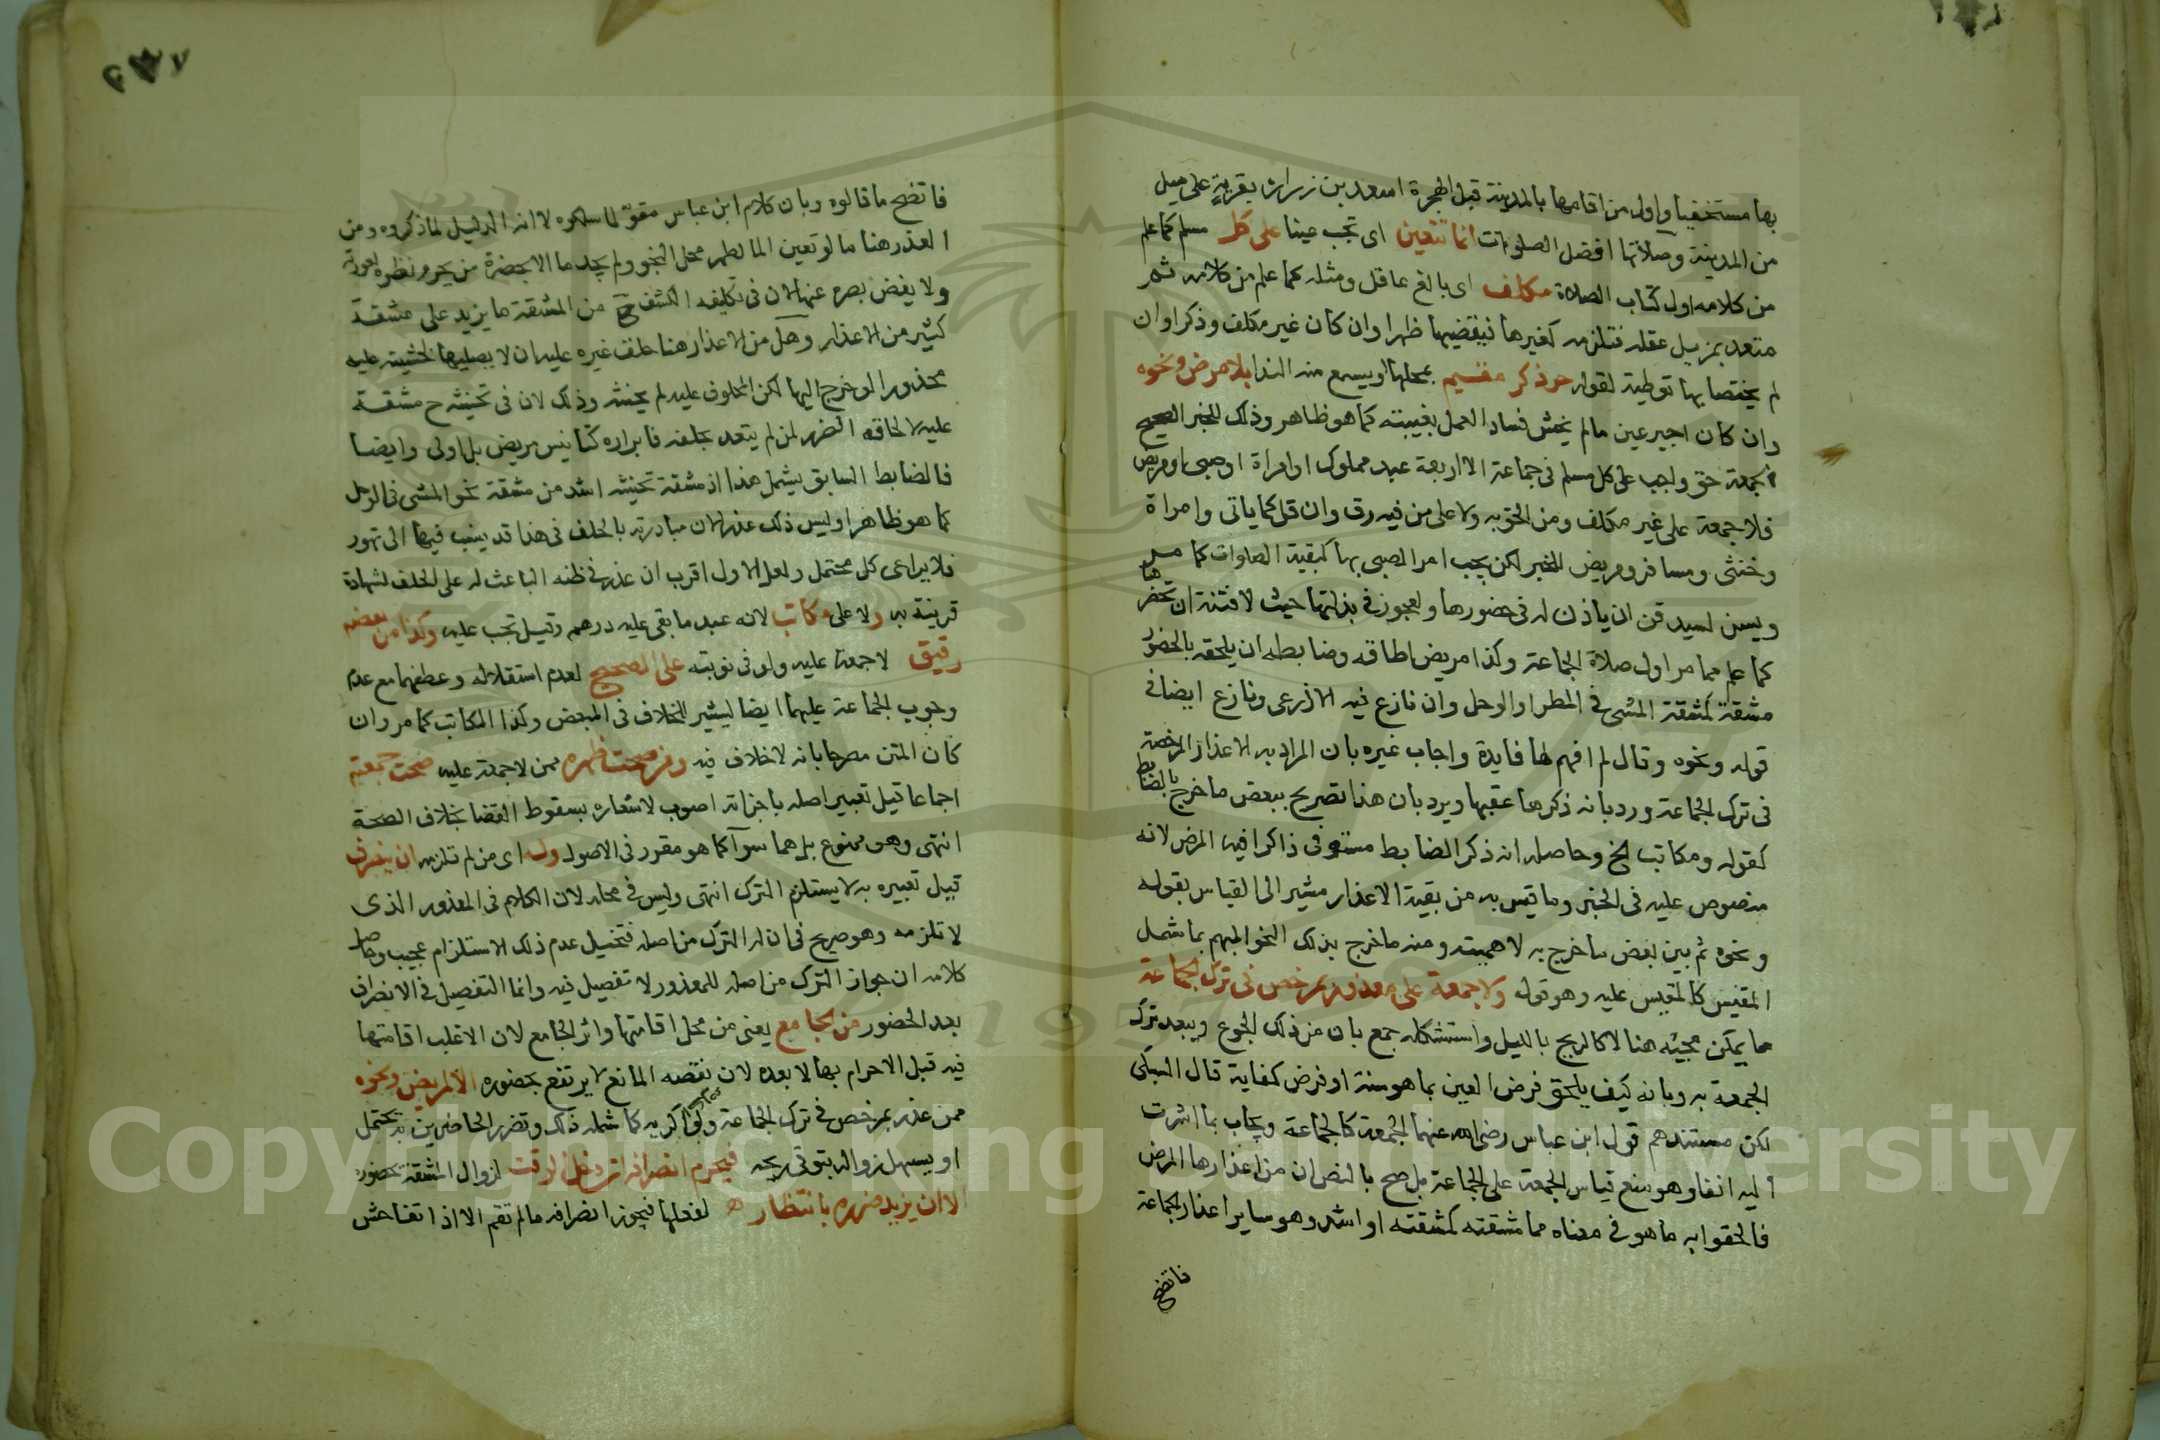 بها مستخفيا واول من اقامها بالمدينة قبل الهجرة اسعد بن زرارة بقرية على ميل
من المدينة وصلاتها افضل الصلوات انما تتعين اى تجب عينا على كل مسلم كما علم
من كلامه اول كتاب الصلاة مكلف اى بالغ عاقل ومثله كما علم من كلامه ثم
متعد بمزيل عقله فتلزمه كغيرها فيقضيها ظهرا وان كان غير مكلف وذكرا وان
لم يختصا بها توطية لقوله حر ذكر مقيم بمحلها او يسمع منه الندا بلا مرض ونحوه
وان كان اجير عين مالم يخش فساد العمل بغيبته كما هو ظاهر وذلك للخبر الصحيح
الجمعة حق واجب على كل مسلم فى جماعة الا اربعة عبد مملوك او امراة او صبى او مريض
فلا جمعة على غير مكلف ومن الحق به ولا على من فيه رق وان قل كما ياتى وامراة
وخنثى ومسافر ومريض للخبر لكن يجب امر الصبى بها كبقية الصلوات كما مر
ويسن لسيد قن ان ياذن له فى حضورها ولعجوز فى بذلتها حيث لا فتنة ان تحضرها
كما علم مما مر اول صلاة الجماعة وكذا مريض اطاقه وضابطه ان يلحقه بالحضور
مشقة كمشقة المشى فى المطر او الوحل وان نازع فيه الاذرعى ونازع ايضا فى
قوله ونحوه وقال لم افهم لها فايدة واجاب غيره بان المراد به الاعذار المرخصة
فى ترك الجماعة ورد بانه ذكرها عقبها ويرد بان هذا تصريح ببعض ما خرج بالضابط
كقوله ومكاتب الخ وحاصله انه ذكر الضابط مستوفى ذاكرا فيه المرض لانه
منصوص عليه فى الخبر وما قيس به من بقية الاعذار مشيرا الى القياس بقوله
ونحوه ثم بين بعض ما خرج به لاهميته ومنه ما خرج بذلك النحو المبهم بما شمل
المقيس كالمقيس عليه وهو قوله ولا جمعة على معذور بمرخص فى ترك الجماعة
مما يمكن مجيئه هنا لا كالريح بالليل واستشكله جمع بان من ذلك الجوع ويبعد ترك
الجمعة به وبانه كيف يلحق فرض العين بما هو سنة او فرض كفاية قال السبكى
لكن مستندهم قول ابن عباس رضى الله عنهما الجمعة كالجماعة ويجاب بما اشرت
اليه انفا وهو منع قياس الجمعة على الجماعة بل صح بالنص ان من اعذارها المرض
فالحقوا به ما هو فى معناه مما مشقته كمشقته او اشد وهو ساير اعذار الجماعة
فاتضح
فاتضح ما قالوه وبان كلام ابن عباس مقو لما سلكوه لا انه الدليل لما ذكروه ومن
العذر هنا ما لو تعين الما لطهر محل النجو ولم يجد ما الا بحضرة من يحرم نظره لعورته
ولا يغض بصره عنها لان فى تكليفه الكشف ح من المشقة ما يزيد على مشقة
كثير من الاعذار وهل من الاعذار هنا حلف غيره عليه ان لا يصليها لخشيته عليه
محذورا لو خرج اليها لكن المحلوف عليه لم يخشه وذلك لان فى تحنيثه ح مشقة
عليه لالحاقه الضرر لمن لم يتعد بحلفه فابراره كتانيس مريض بل اولى وايضا
فالضابط السابق يشمل هذا اذ مشقة تحنيثه اشد من مشقة نحو المشى فى الوحل
كما هو ظاهر او ليس ذلك عذرا لان مبادرته بالحلف فى هذا قد ينسب فيها الى تهور
فلا يراعى كل محتمل ولعل الاول اقرب ان عذر فى ظنه الباعث له على الحلف لشهادة
قرينة به ولا على مكاتب لانه عبد ما بقى عليه درهم وقيل تجب عليه وكذا من بعضه
رقيق لا جمعة عليه ولو فى نوبته على الصحيح لعدم استقلاله وعطفهما مع عدم
وجوب الجماعة عليهما ايضا ليشير للخلاف فى المبعض وكذا المكاتب كما مر وان
كان المتن مصرحا بانه لا خلاف فيه ومن صحت ظهره ممن لا جمعة عليه صحت جمعته
اجماعا قيل تعبير اصله باجزاته اصوب لاشعاره بسقوط القضا بخلاف الصحة
انتهى وهو ممنوع بل هما سوآ كما هو مقرر فى الاصول وله اى من لم تلزمه ان ينصرف
قيل تعبيره به لا يستلزم الترك انتهى وليس فى محله لان الكلام فى المعذور الذى
لا تلزمه وهو صريح فى ان له الترك من اصله فتخيل عدم ذلك الاستلزام عجيب وحاصل
كلامه ان جواز الترك من اصله للمعذور لا تفصيل فيه وانما التفصيل فى الانصراف
بعد الحضور من الجامع يعنى من محل اقامتها واثر الجامع لان الاغلب اقامتها
فيه قبل الاحرام بها لا بعده لان نقصه المانع لا يرتفع بحضوره الا المريض ونحوه
ممن عذر بمرخص فى ترك الجماعة ولو اكل كريه كما شمله ذلك وتضرر الحاضرين به يحتمل
او يسهل زواله بتوقى ريحه فيحرم انصرافه ان دخل الوقت لزوال المشقة بحضوره
الا ان يزيد ضرره بانتظاره لفعلها فيجوز انصرافه مالم تقم الا اذا تفاحش